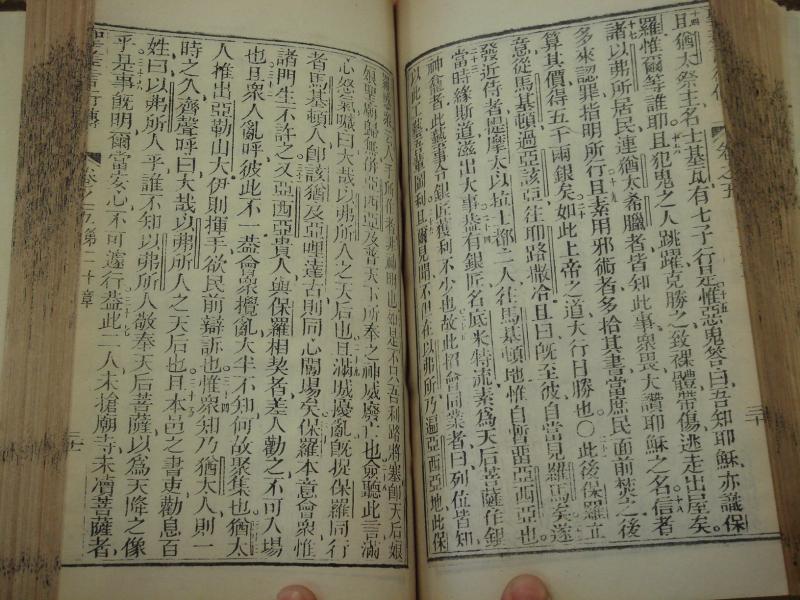 且猶太祭主名士基瓦有七子行是惟惡鬼答曰吾知耶穌亦識保
羅惟爾等誰耶且犯鬼之人跳躍克勝之致裸體帶傷逃走出屋矣
諸以弗所居民連猶太希臘者皆知此事衆畏大讚耶穌之名信者
多來認罪指明所行且素用邪術者多拾其書當庶民面前焚之後
算其價得五千兩銀矣如此上帝之道大行日勝也〇此後保羅立
意從馬基頓過亞該亞往耶路撒冷且曰旣至彼自當見羅馬矣遂
發近侍者提摩太以拉士都二人往馬基頓地惟自暫畱亞西亞也
當時緣斯道滋出大事蓋有銀匠名底米特流素爲天后菩薩作銀
神龕者此藝事令銀匠獲利不少也故此招會同業者曰列位皆知
以此工藝吾輩圖利且爾見聞不但在以弗所乃遍亞西亞地此保
人手所作者非神明也如是不只吾利路將塞卽天后娘
娘聖廟歸無倂亞西亞及普天下所奉之神威廢亡也僉聽此言滿
心怒氣喊曰大哉以弗所人之天后也且滿城擾亂旣捉保羅同行
者馬基頓人卽該猶及亞哩達古則同心闖場矣保羅本意會衆惟
諸門生不許之又亞西亞貴人與保羅相契者差人勸之不可入場
也且衆人亂呼彼此不一蓋會衆攪亂大半不知何故聚集也猶太
人推出亞勒山大伊則揮手欲民前辯訴也惟衆知乃猶太人則一
時之久齊聲呼曰大哉以弗所人之天后也且本邑之書吏勸息百
姓曰以弗所人乎誰不知以弗所人敬奉天后菩薩以爲天降之像
乎是事旣明爾當安心不可遽行蓋此二人未搶廟寺未凟菩薩者
卷之五 第二十章